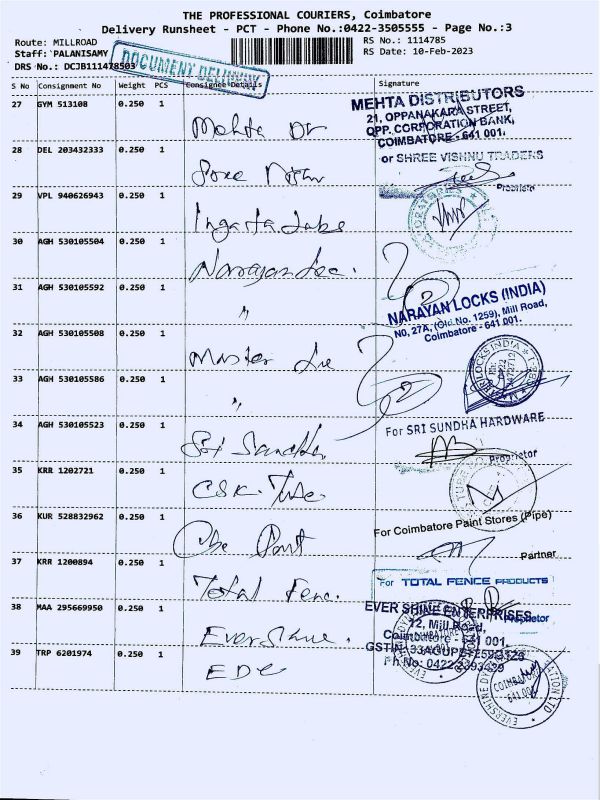 THE PROFESSIONAL COURIERS, Coimbatore
Delivery Runsheet - PCT - Phone No.:0422-3505555 - Page No.:3
Route: MILLROAD
RS No.: 1114785
Staff: PALANISAMY
RS Date: 10-Feb-2023
DRS No.: DCJB111478503
DOCUMENT DELIVERY
S No Consignment No Weight PCS Consignee Details Signature
27 GYM 513108 0.250 1
Mehta Dr
MEHTA DISTRIBUTORS
21, OPPANAKARA STREET,
OPP. CORPORATION BANK,
COIMBATORE - 641 001.
28 DEL 203432333 0.250 1
Sree
or SHREE VISHNU TRADERS
Proprietor
29 VPL 940626943 0.250 1
Labs
30 AGH 530105504 0.250 1
Narayan Loc.
31 AGH 530105592 0.250 1
"
NARAYAN LOCKS (INDIA)
NO, 27A, (Old No. 1259), Mill Road,
Coimbatore - 641 001.
32 AGH 530105508 0.250 1
Master
33 AGH 530105586 0.250 1
"
34 AGH 530105523 0.250 1
Sri
For SRI SUNDHA HARDWARE
Proprietor
35 KRR 1202721 0.250 1
CSK Tube
36 KUR 528832962 0.250 1
Cbe Paint
For Coimbatore Paint Stores (Pipe)
Partner
37 KRR 1200894 0.250 1
Total Fenc.
For TOTAL FENCE PRODUCTS
Proprietor
38 MAA 295669950 0.250 1
Evershine.
EVER SHINE ENTERPRISES
72, Mill Road,
Coimbatore - 641 001.
39 TRP 6201974 0.250 1
EDC